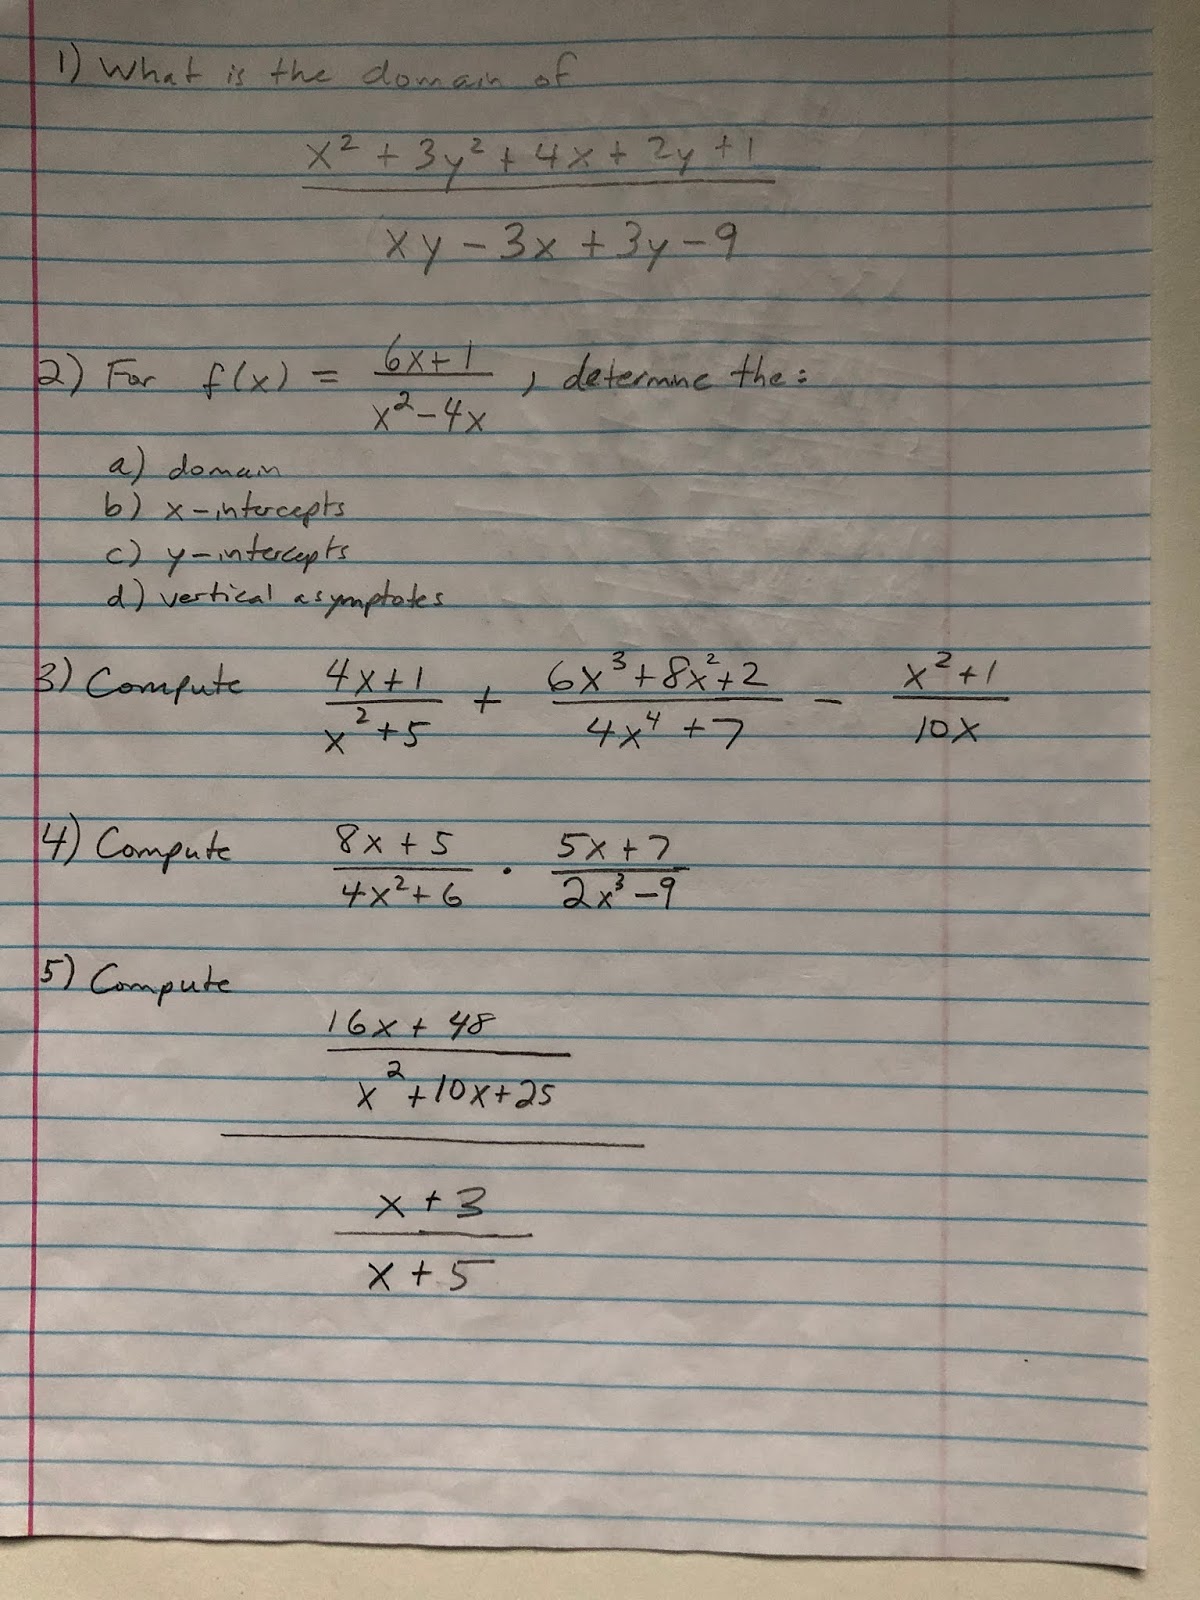 1) What is the domain of
x² + 3y² + 4x + 2y + 1
xy - 3x + 3y - 9
2) For f(x) = (6x+1)/(x²-4x), determine the:
a) domain
b) x-intercepts
c) y-intercepts
d) vertical asymptotes
3) Compute (4x+1)/(x²+5) + (6x³+8x²+2)/(4x⁴+7) - (x²+1)/(10x)
4) Compute (8x+5)/(4x²+6) · (5x+7)/(2x³-9)
5) Compute
16x + 48
x²+10x+25
x + 3
x + 5